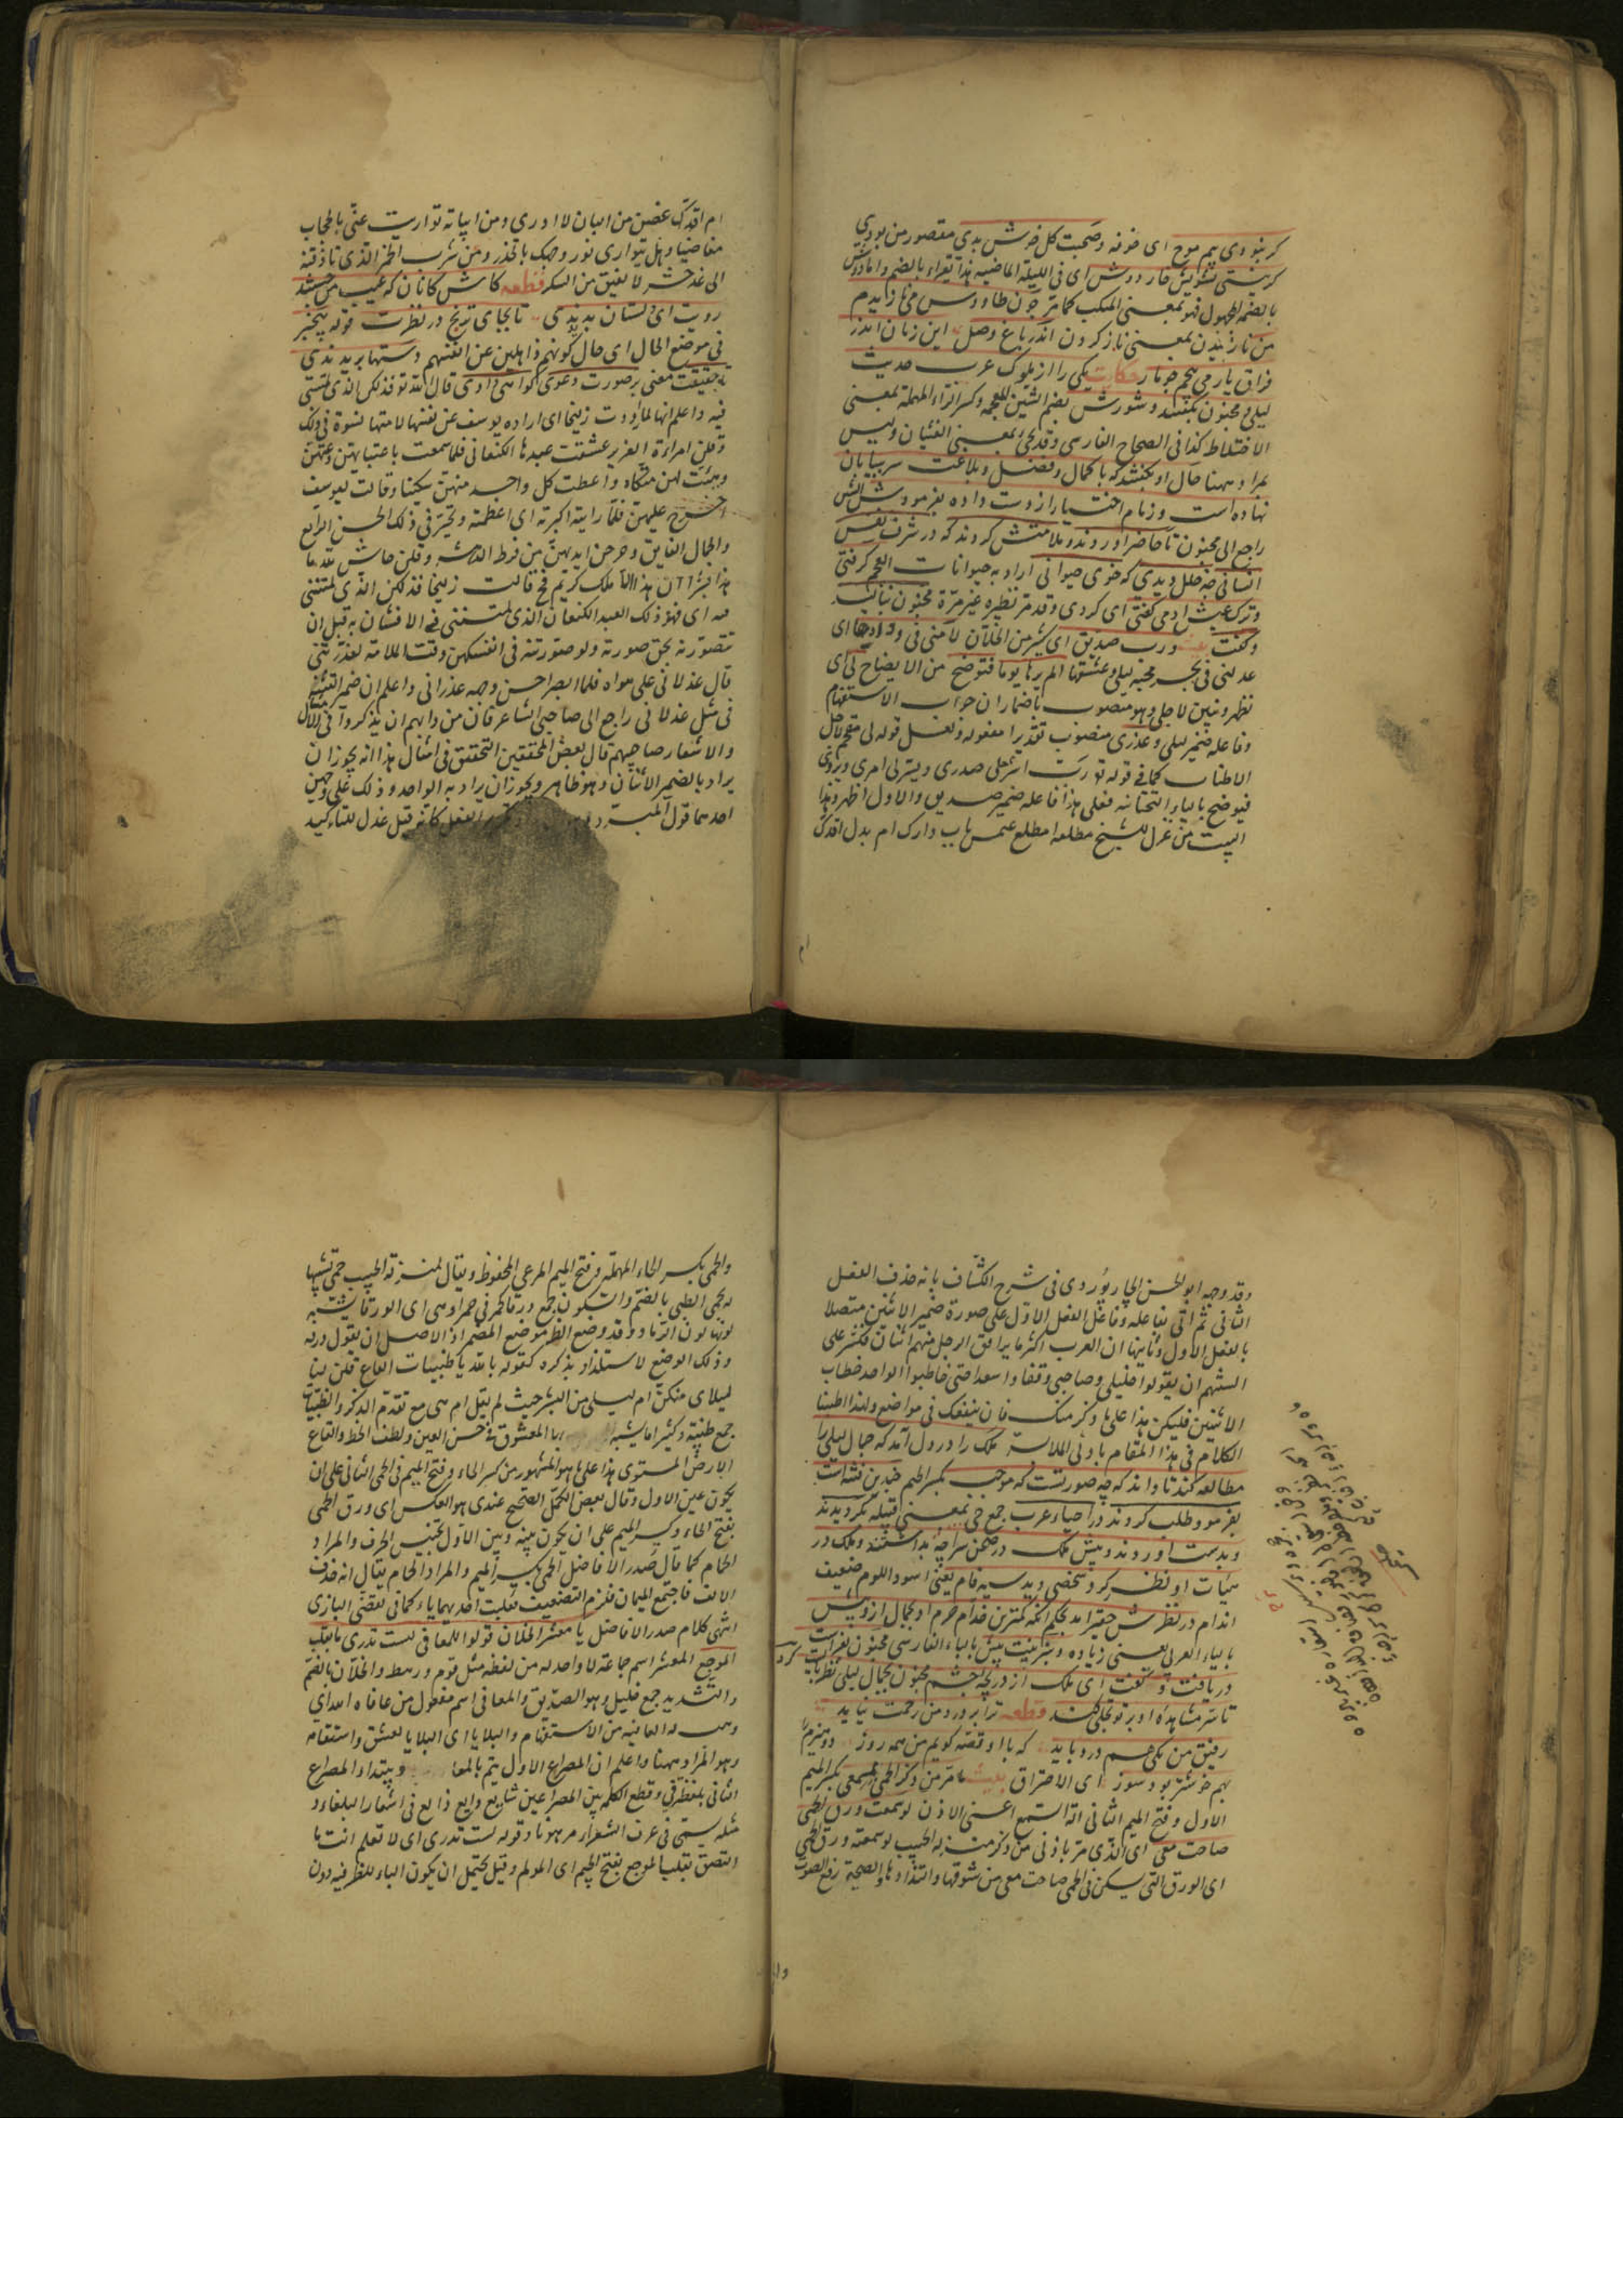 كر نبودى بيم موج اى خوفه وصحبت كل خوش بدى مقصور من بودى
كر نيستى تشويش خار دوش اى فى الليلة الماضيه هذا يقراء بالضم واما دوش
بالضمة المجهول فهو بمعنى المنكب كما مر جون طاووس مى نازيدم
من نازيدن بمعنى ناز كردن اندر باغ وصل اين زمان اندر
فراق يار مى پيچم چو مار حكايت يكى را از ملوك عرب حديث
ليلى ومجنون بگفتند وشورش بضم الشين المعجمه وكسر الراء المهملة بمعنى
الاختلاط كذا فى الصحاح الفارسى وقد يجئ بمعنى الغثيان وليس
بمراد ههنا حال او بگفتند كه با كمال وفضل وبلاغت سر بيابان
نهاده است وزمام اختيار از دست داده بفرمودش الشين
راجع الى مجنون تا حاضر اوردند وملامتش كردند كه در شرف نفس
انسانى چه خلل ديدى كه خوى حيوانى اراد به حيوانات العجم كرفتى
وترك عيش ادمى كفتى اى كردى وقد مر نظيره غير مرة مجنون بناليد
وكفت ورب صديق اى كثير من الخلان لامنى فى ودادها اى
عدلنى فى محبه ليلى وعشقها الم يرها يوما فتوضح من الايضاح لى اى
تظهر وتبين لاجلى وهو منصوب باضمار ان جواب الاستفهام
وفاعله ضمير ليلى وعذرى منصوب تقديرا مفعوله ولعل قوله لى مقحم لاجل
الاطناب كما فى قوله تع رب اشرح لى صدرى ويسر لى امرى ويروى
فيوضح بالياء التحتانيه فعلى هذا فاعله ضمير صديق والاول اظهر وهذا
البيت من غزل للشيخ مطلعه امطلع شمس باب دارك ام بدر اقدك
ام
ام اقدك غصن من البان لا ادرى ومن ابياته تواريت عنى بالحجاب
مغاضبا وهل يتوارى نور وجهك بالخدر ومن شرب الخمر الذى انا ذقته
الى غد حشر لا يفيق من السكر قطعه كاش كانان كه عيب من جستند
رويت اى دلستان بديدندى تا بجاى ترنج در نظرت قوله بيخبر
فى موضع الحال اى حال كونهم ذاهلين عن انفسهم دستها بريدندى
تا حقيقت معنى بر صورت دعوى كواهى دادى قال الله تع فذلكن الذى لمتننى
فيه واعلم انها لما راودت زليخا اى اراده يوسف عن نفسها لامتها نسوة فى ذلك
وقلن امراءة العزيز عشقت عبدها الكنعانى فلما سمعت باغتيابهن دعتهن
وهيئت لهن متكاء واعطت كل واحد منهن سكينا وقالت ليوسف
اخرج عليهن فلما راينه اكبرنه اى اعظمنه وتحير فى ذلك الحسن الرائع
والجمال الفايق وجرحن ايديهن من فرط الدهشه وقلن حاش لله ما
هذا بشرا ان هذا الا ملك كريم فح قالت زليخا فذلكن الذى لمتننى
فيه اى فهو ذلك العبد الكنعانى الذى لمتننى فى الافتتان به قبل ان
تتصورنه بحق صورته ولو صورتنه فى انفسكن وقت الملامة لعذرتننى
قال عذلانى على هواه فلما ابصرا حسن وجهه عذرانى واعلم ان ضمير التثنيه
فى مثل عذلانى راجع الى صاحبى الشاعر فان من دابهم ان يذكروا فى الامثال
والاشعار صاحبيهم قال بعض المحققين التحقيق فى امثال هذا انه يجوز ان
يراد بالضمير الاثنان وهو ظاهر ويجوز ان يراد به الواحد وذلك على وجهين
احدهما قول المبرد الفعل كانه قيل عذل للتاءكيد
وقد وجه ابو الحسن الجاربردى فى شرح الكشاف بانه حذف الفعل
الثانى ثم اتى بفاعله وفاعل الفعل الاول على صورة ضمير الاثنين متصلا
بالفعل الاول وثانيها ان العرب اكثر ما يرافق الرجل منهم اثنان فكثر على
السنتهم ان يقولوا خليلى وصاحبى وقفا واسعدا حتى خاطبوا الواحد خطاب
الاثنين فليكن هذا على ذكر منك فانه ينفعك فى مواضع ولذا اطنبنا
الكلام فى هذا المقام بادنى الملابسة ملك را در دل آمد كه جمال ليلى را
مطالعه كند تا داند كه چه صورتست كه موجب بكسر الجيم چندين فتنه است
بفرمود وطلب كردند در احياء عرب جمع حى بمعنى قبيله بگرديدند
وبدست اوردند وپيش ملك در صحن سراچه بداشتند وملك در
هيئات او نظر كرد شخصى ديد سيه فام يعنى اسود اللون ضعيف
اندام در نظرش حقير امد بحكم انكه كمترين خدام حرم او بجمال ازو بيش
بالباء العربى يعنى زياده وبزينت پيش بالباء الفارسى مجنون بفراست
دريافت وكفت اى ملك از دريچه چشم مجنون بجمال ليلى نظر بايست كرد
تا سر مشاهده او بر تو تجلى كند قطعه ترا بر درد من رحمت نيايد
رفيق من يكى همدرد بايد كه با او قصه كويم من همه روز دو هيزم را
بهم خوشتر بود سوز اى الاحتراق بيت ما مر من ذكر الحمى بمسمعى بكسر الميم
الاول وفتح الميم الثانى الة السمع اعنى الاذن لو سمعت ورق الحمى
صاحت معى اى الذى مر باذنى من ذكر منزلة الحبيب لو سمعته ورق الحمى
اى الورق التى يسكن فى الحمى صاحت معى من شوقها والتذاذها والصيحة رفع الصوت
والحمى بكسر الحاء المهملة وفتح الميم المرعى المحفوظ ويقال لمنزلة الحبيب حمى تشبيها
له بحمى الظبى بالضم والسكون جمع ورقاء كحمر فى حمراء وهى اى الورقاء يشبه
لونها لون الرماد وقد وضع الظاهر موضع المضمر اذ الاصل ان يقول ورقه
وذلك الوضع لاستلذاذ بذكره كقوله بالله يا ظبيات القاع قلن لنا
ليلاى منكن ام ليلى من البشر حيث لم يقل ام هى مع تقدم الذكر والظبيات
جمع ظبية وكثيرا ما يشبه بها المعشوق فى حسن العين ولطف الخط والقاع
الارض المستوى هذا على ما هو المشهور من كسر الحاء وفتح الميم فى الحمى الثانى على ان
يكون عين الاول وقال بعض الكمل الصحيح عندى هو العكس اى ورق الحمى
بفتح الحاء وكسر الميم على ان يكون بينه وبين الاول تجنيس الحرف والمراد
الحمام كما قال صدر الافاضل الحمى بكسر الميم والمراد الحمام يقال انه حذف
الالف فاجتمع الميمان فلزم التضعيف فقلبت احديهما ياء كما فى تقضى البازى
انتهى كلام صدر الافاضل يا معشر الخلان قولوا للمعافى لست تدرى ما بقلب
الموجع المعشر اسم جماعة لا واحد له من لفظه مثل قوم ورهط والخلان بالضم
والتشديد جمع خليل وهو الصديق والمعافى اسم مفعول من عافاه الله اى
وهب له العافيه من الاسقام والبلايا اى البلايا العشق واسقامه
وهو المراد ههنا واعلم ان المصراع الاول يتم بالمعا ويبتداء المصراع
الثانى بلفظ فى وقطع الكلمه بين المصراعين شايع وايع ذايع فى اشعار البلغاء و
مثله يسمى فى عرف الشعراء مرهونا وقوله لست تدرى اى لا تعلم انت ما
التصق بقلب الموجع بفتح الجيم اى المولم وقيل يحتمل ان يكون الباء للظرفيه دون